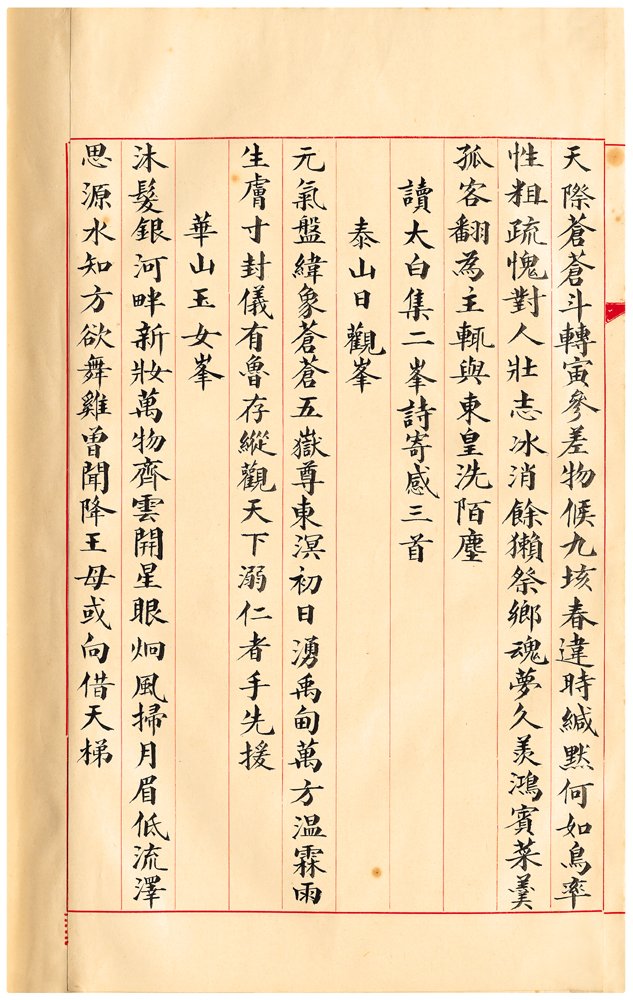 天際蒼蒼斗轉寅參差物候九垓春違時緘默何如鳥率
性粗疏愧對人壯志冰消餘獺祭鄉魂夢久羨鴻賓菜羹
孤客翻為主輒與東皇洗陌塵
讀太白集二峯詩寄感三首
泰山日觀峯
元氣盤緯象蒼蒼五嶽尊東溟初日湧禹甸萬方溫霖雨
生膚寸封儀有魯存縱觀天下溺仁者手先援
華山玉女峯
沐髮銀河畔新妝萬物齊雲開星眼炯風掃月眉低流澤
思源水知方欲舞雞曾聞降王母或向借天梯